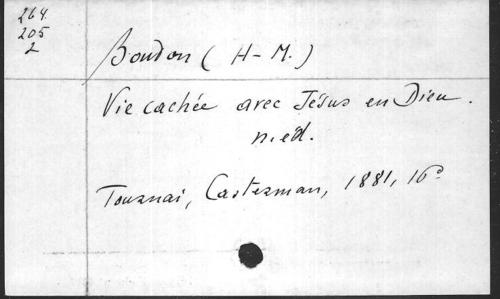 264.
205
2
Boudon (H-M.)
Vie cachée avec Jésus en Dieu.
n. éd.
Tournai, Casterman, 1881, 16°